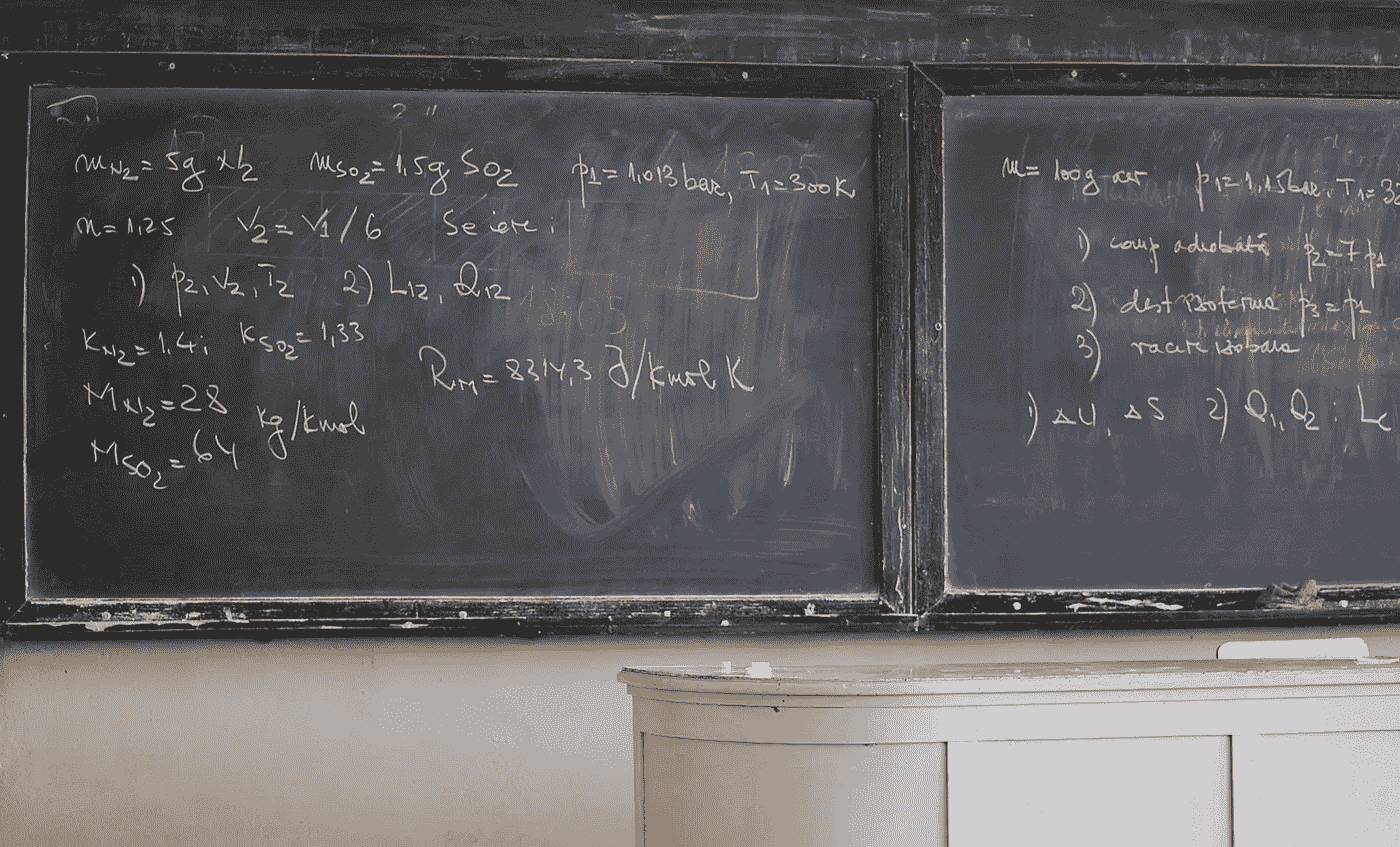 m_N₂ = 5g N₂ m_SO₂ = 1,5g SO₂ p₁ = 1,013 bar, T₁ = 300K
n = 1,25 V₂ = V₁/6 Se cere:
1) p₂, V₂, T₂ 2) L₁₂, Q₁₂
K_N₂ = 1.4; K_SO₂ = 1,33
R_M = 8314,3 J/kmol K
M_N₂ = 28
M_SO₂ = 64 kg/kmol
m = 100g aer p₁ = 1,15bar, T₁ = 32
1) comp adiabată p₂ = 7 p₁
2) dest izoterma p₃ = p₁
3) racire izobara
1) ΔU, ΔS 2) Q₁, Q₂; Lc